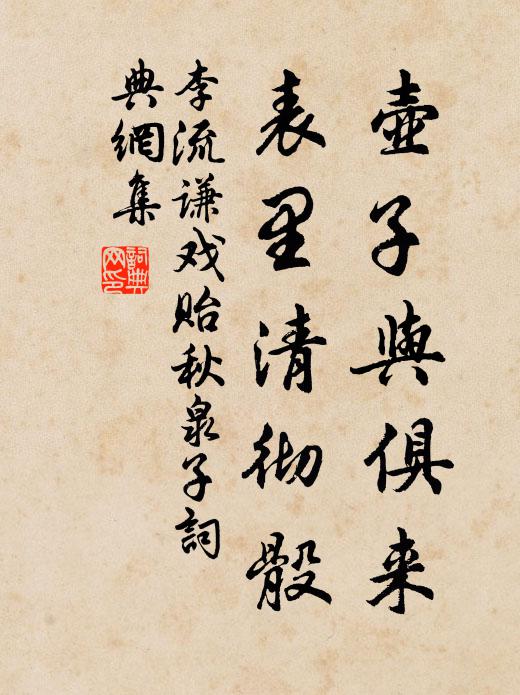 壺子與俱来
表里清彻骰
李流谦戏贻秋泉子詞
典網集
詞典
网印